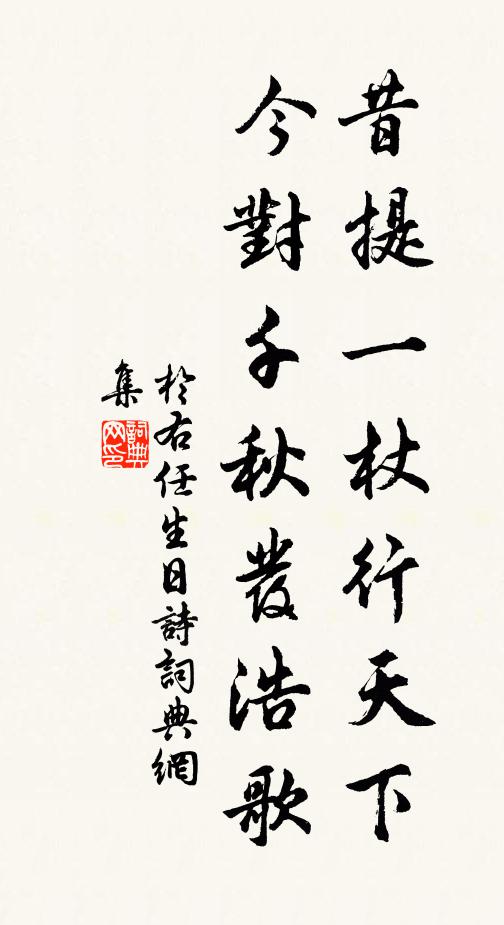 昔提一杖行天下
今對千秋發浩歌
於右任生日詩詞典網
集
詞典
网印